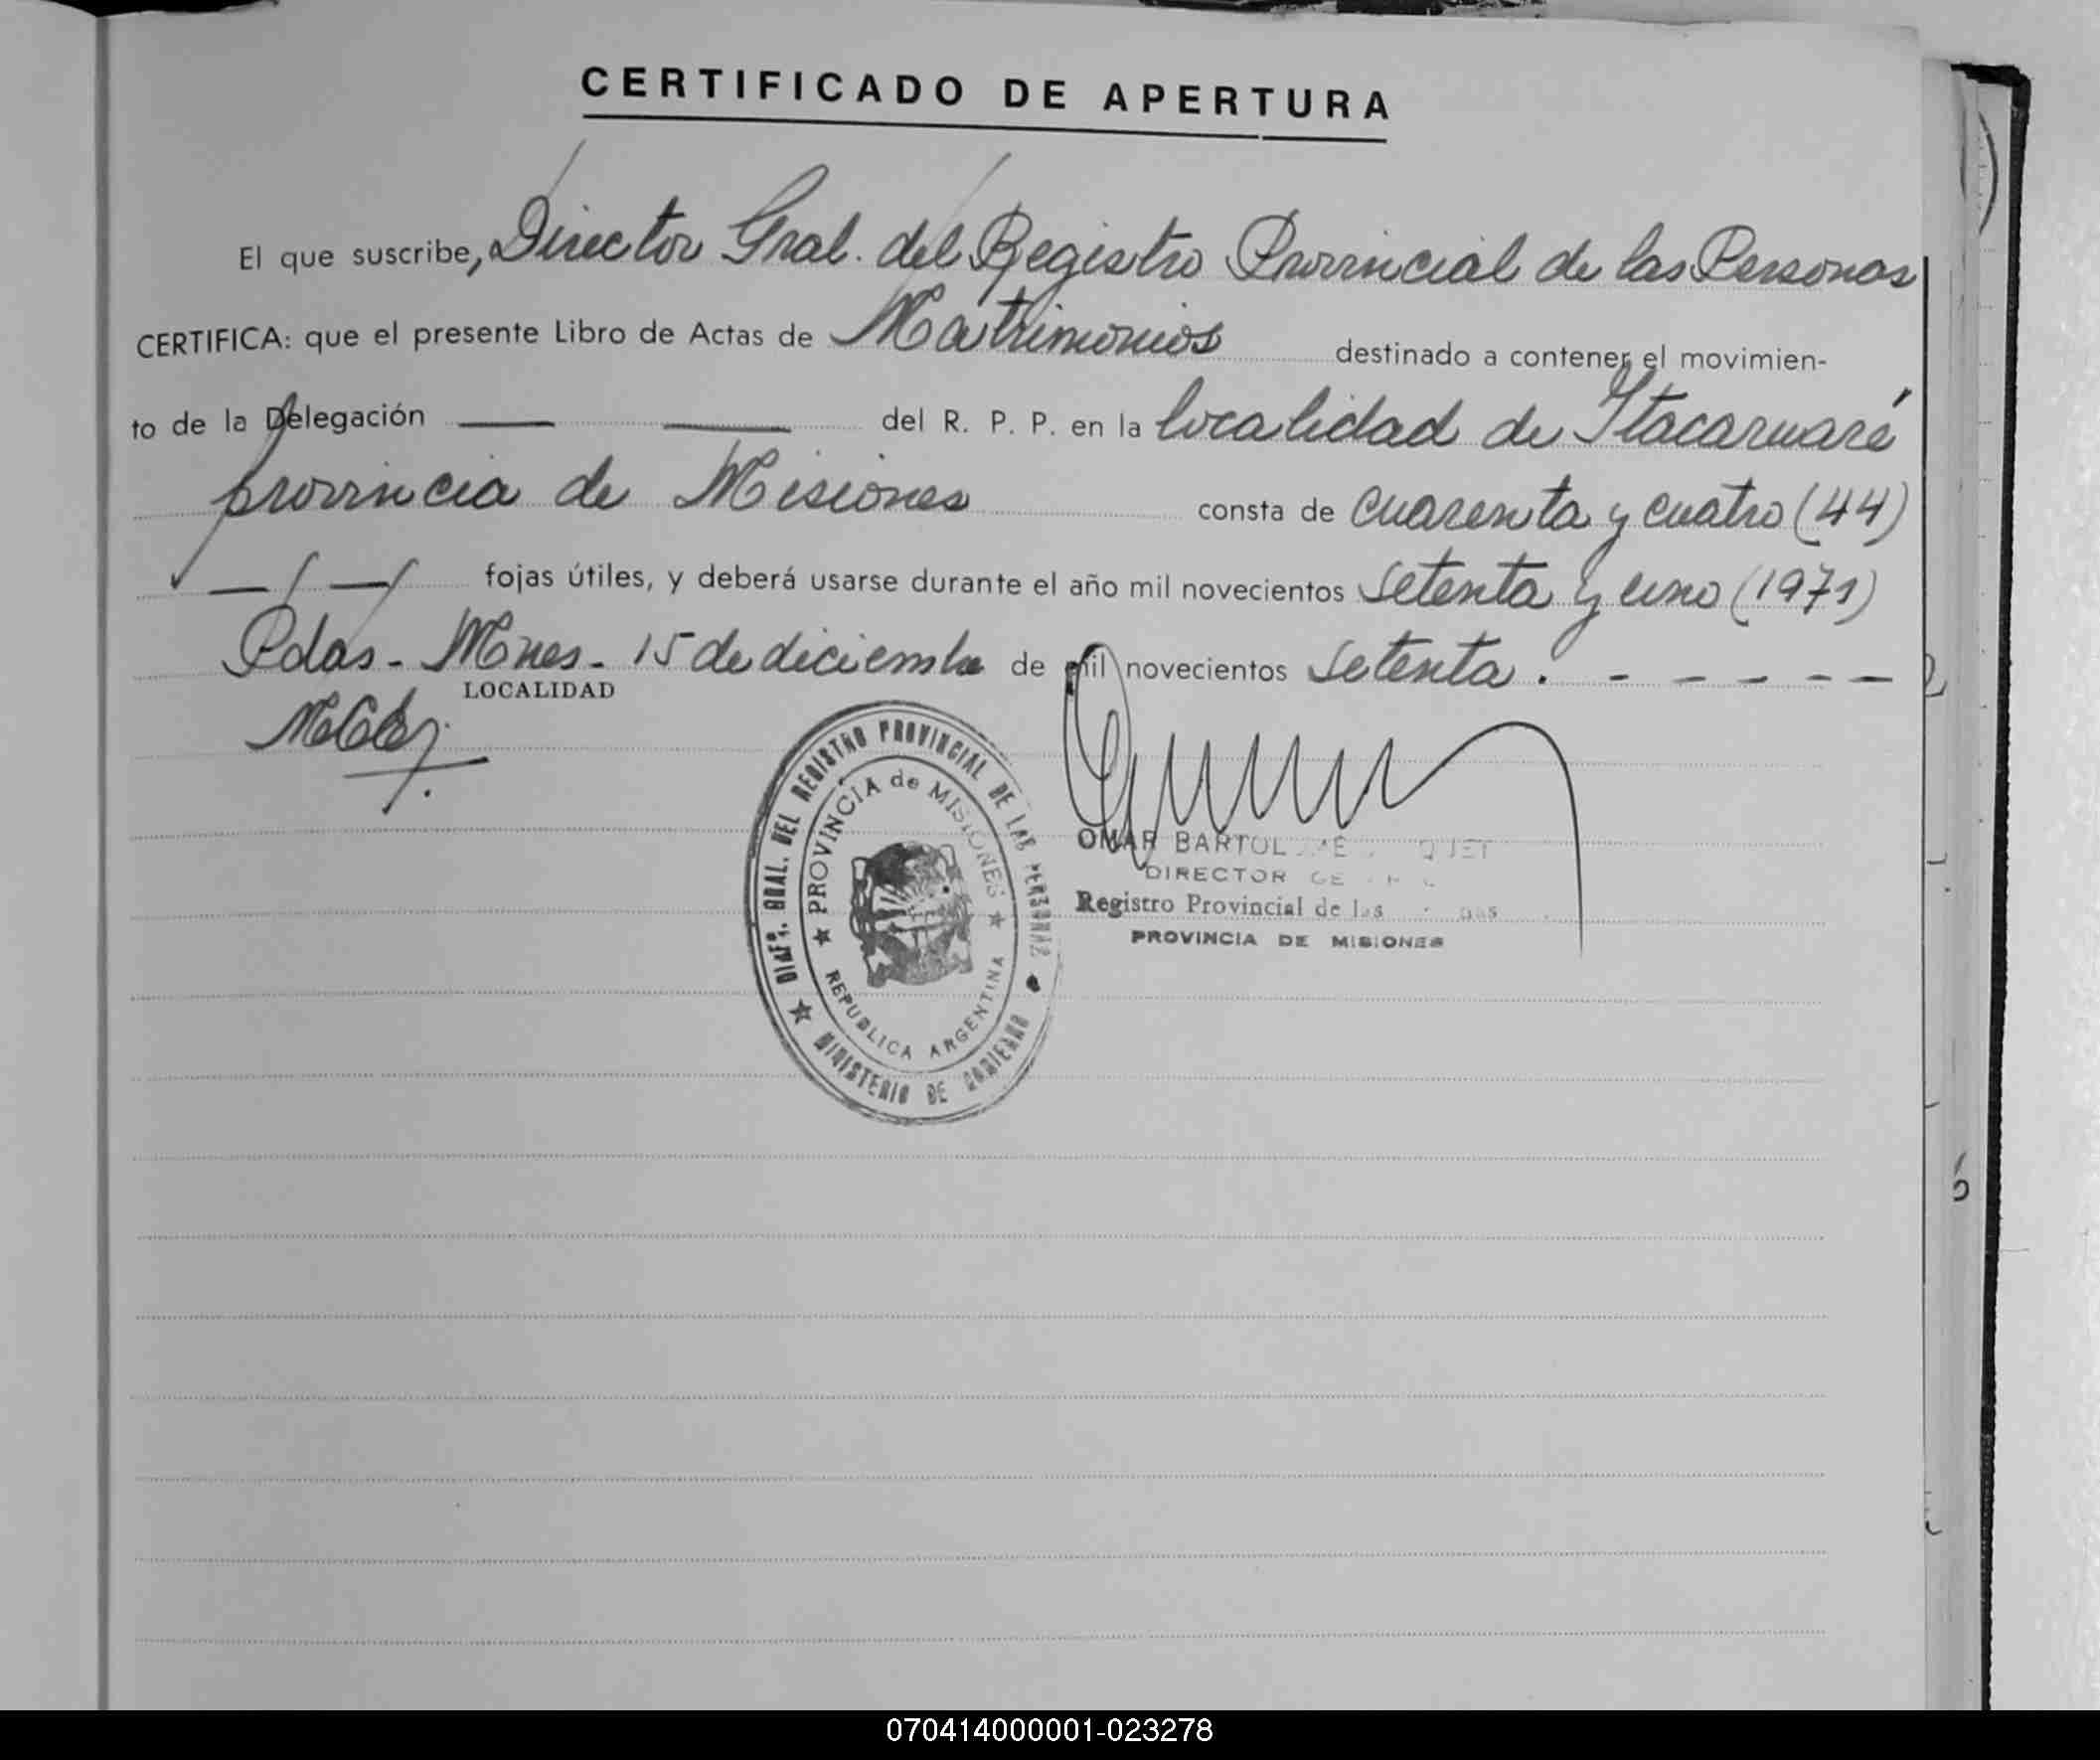 CERTIFICADO DE APERTURA
El que suscribe, Director Gral. del Registro Provincial de las Personas
CERTIFICA: que el presente Libro de Actas de Matrimonios destinado a contener el movimien-
to de la Delegación — — del R. P. P. en la localidad de Itacaruaré
provincia de Misiones consta de cuarenta y cuatro (44)
— / — / fojas útiles, y deberá usarse durante el año mil novecientos setenta y uno (1971)
Pdas - Mnes - 15 de diciembre de mil novecientos setenta . - - - - - -
LOCALIDAD
DIREC. GRAL. DEL REGISTRO PROVINCIAL DE LAS PERSONAS
PROVINCIA de MISIONES
REPUBLICA ARGENTINA
MINISTERIO DE GOBIERNO
OMAR
DIRECTOR
Registro Provincial de las
PROVINCIA DE MISIONES
070414000001-023278